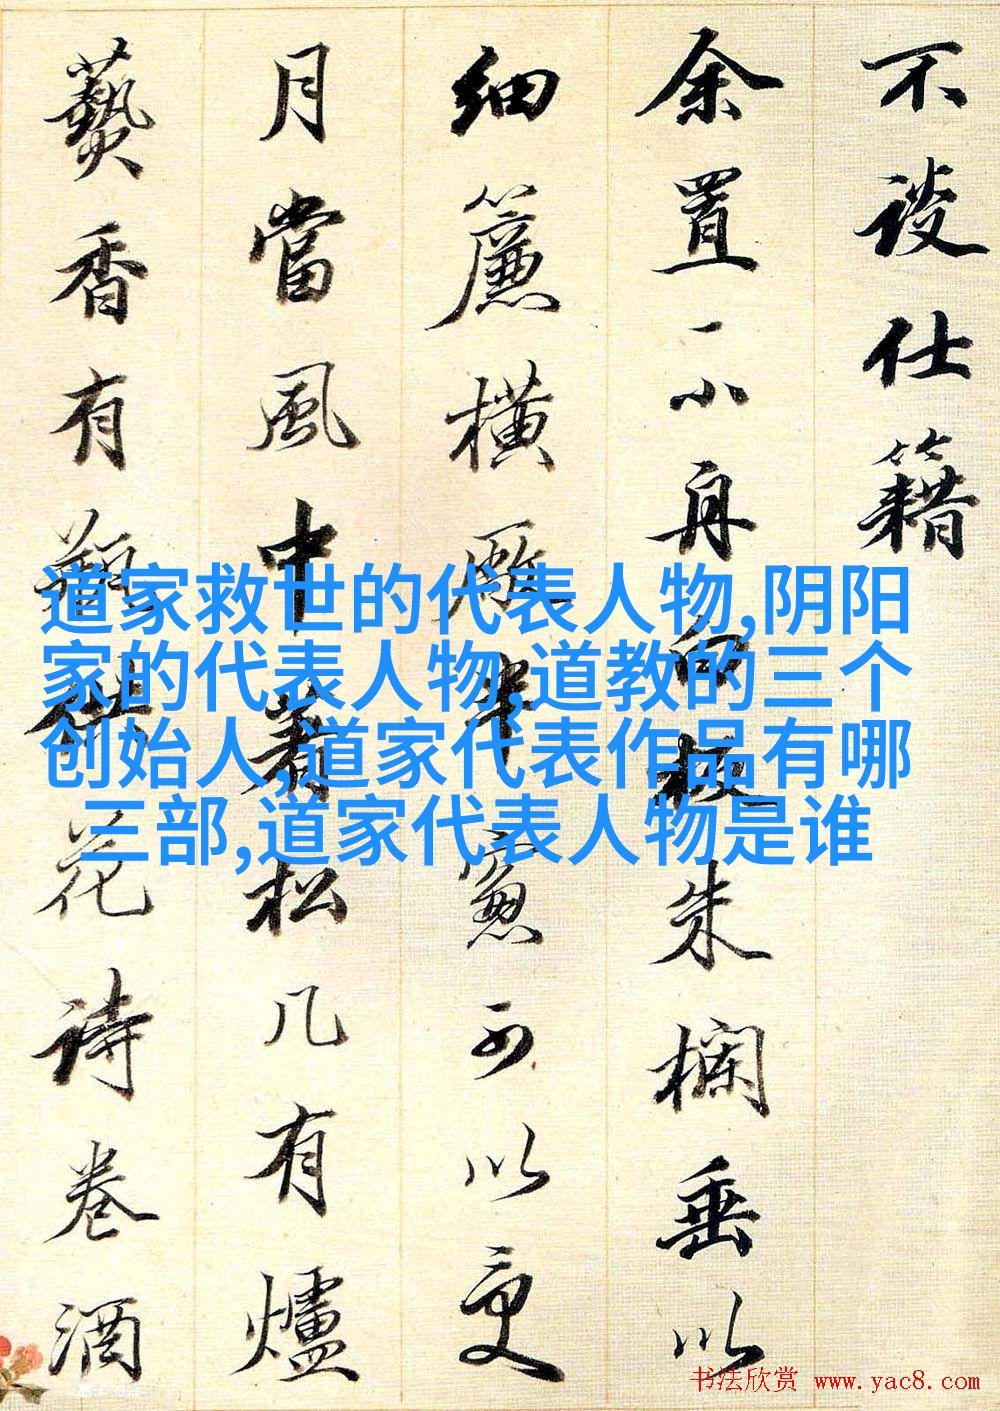 不談仕籍
余置一小舟白板朱欄垂以
細簾橫半窓可以更
月當風中着松几有爐
爇香有瓶花詩卷酒
道家救世的代表人物,阴阳
家的代表人物,道教的三个
创始人,道家代表作品有哪
三部,道家代表人物是谁
书法欣赏 www.yac8.com